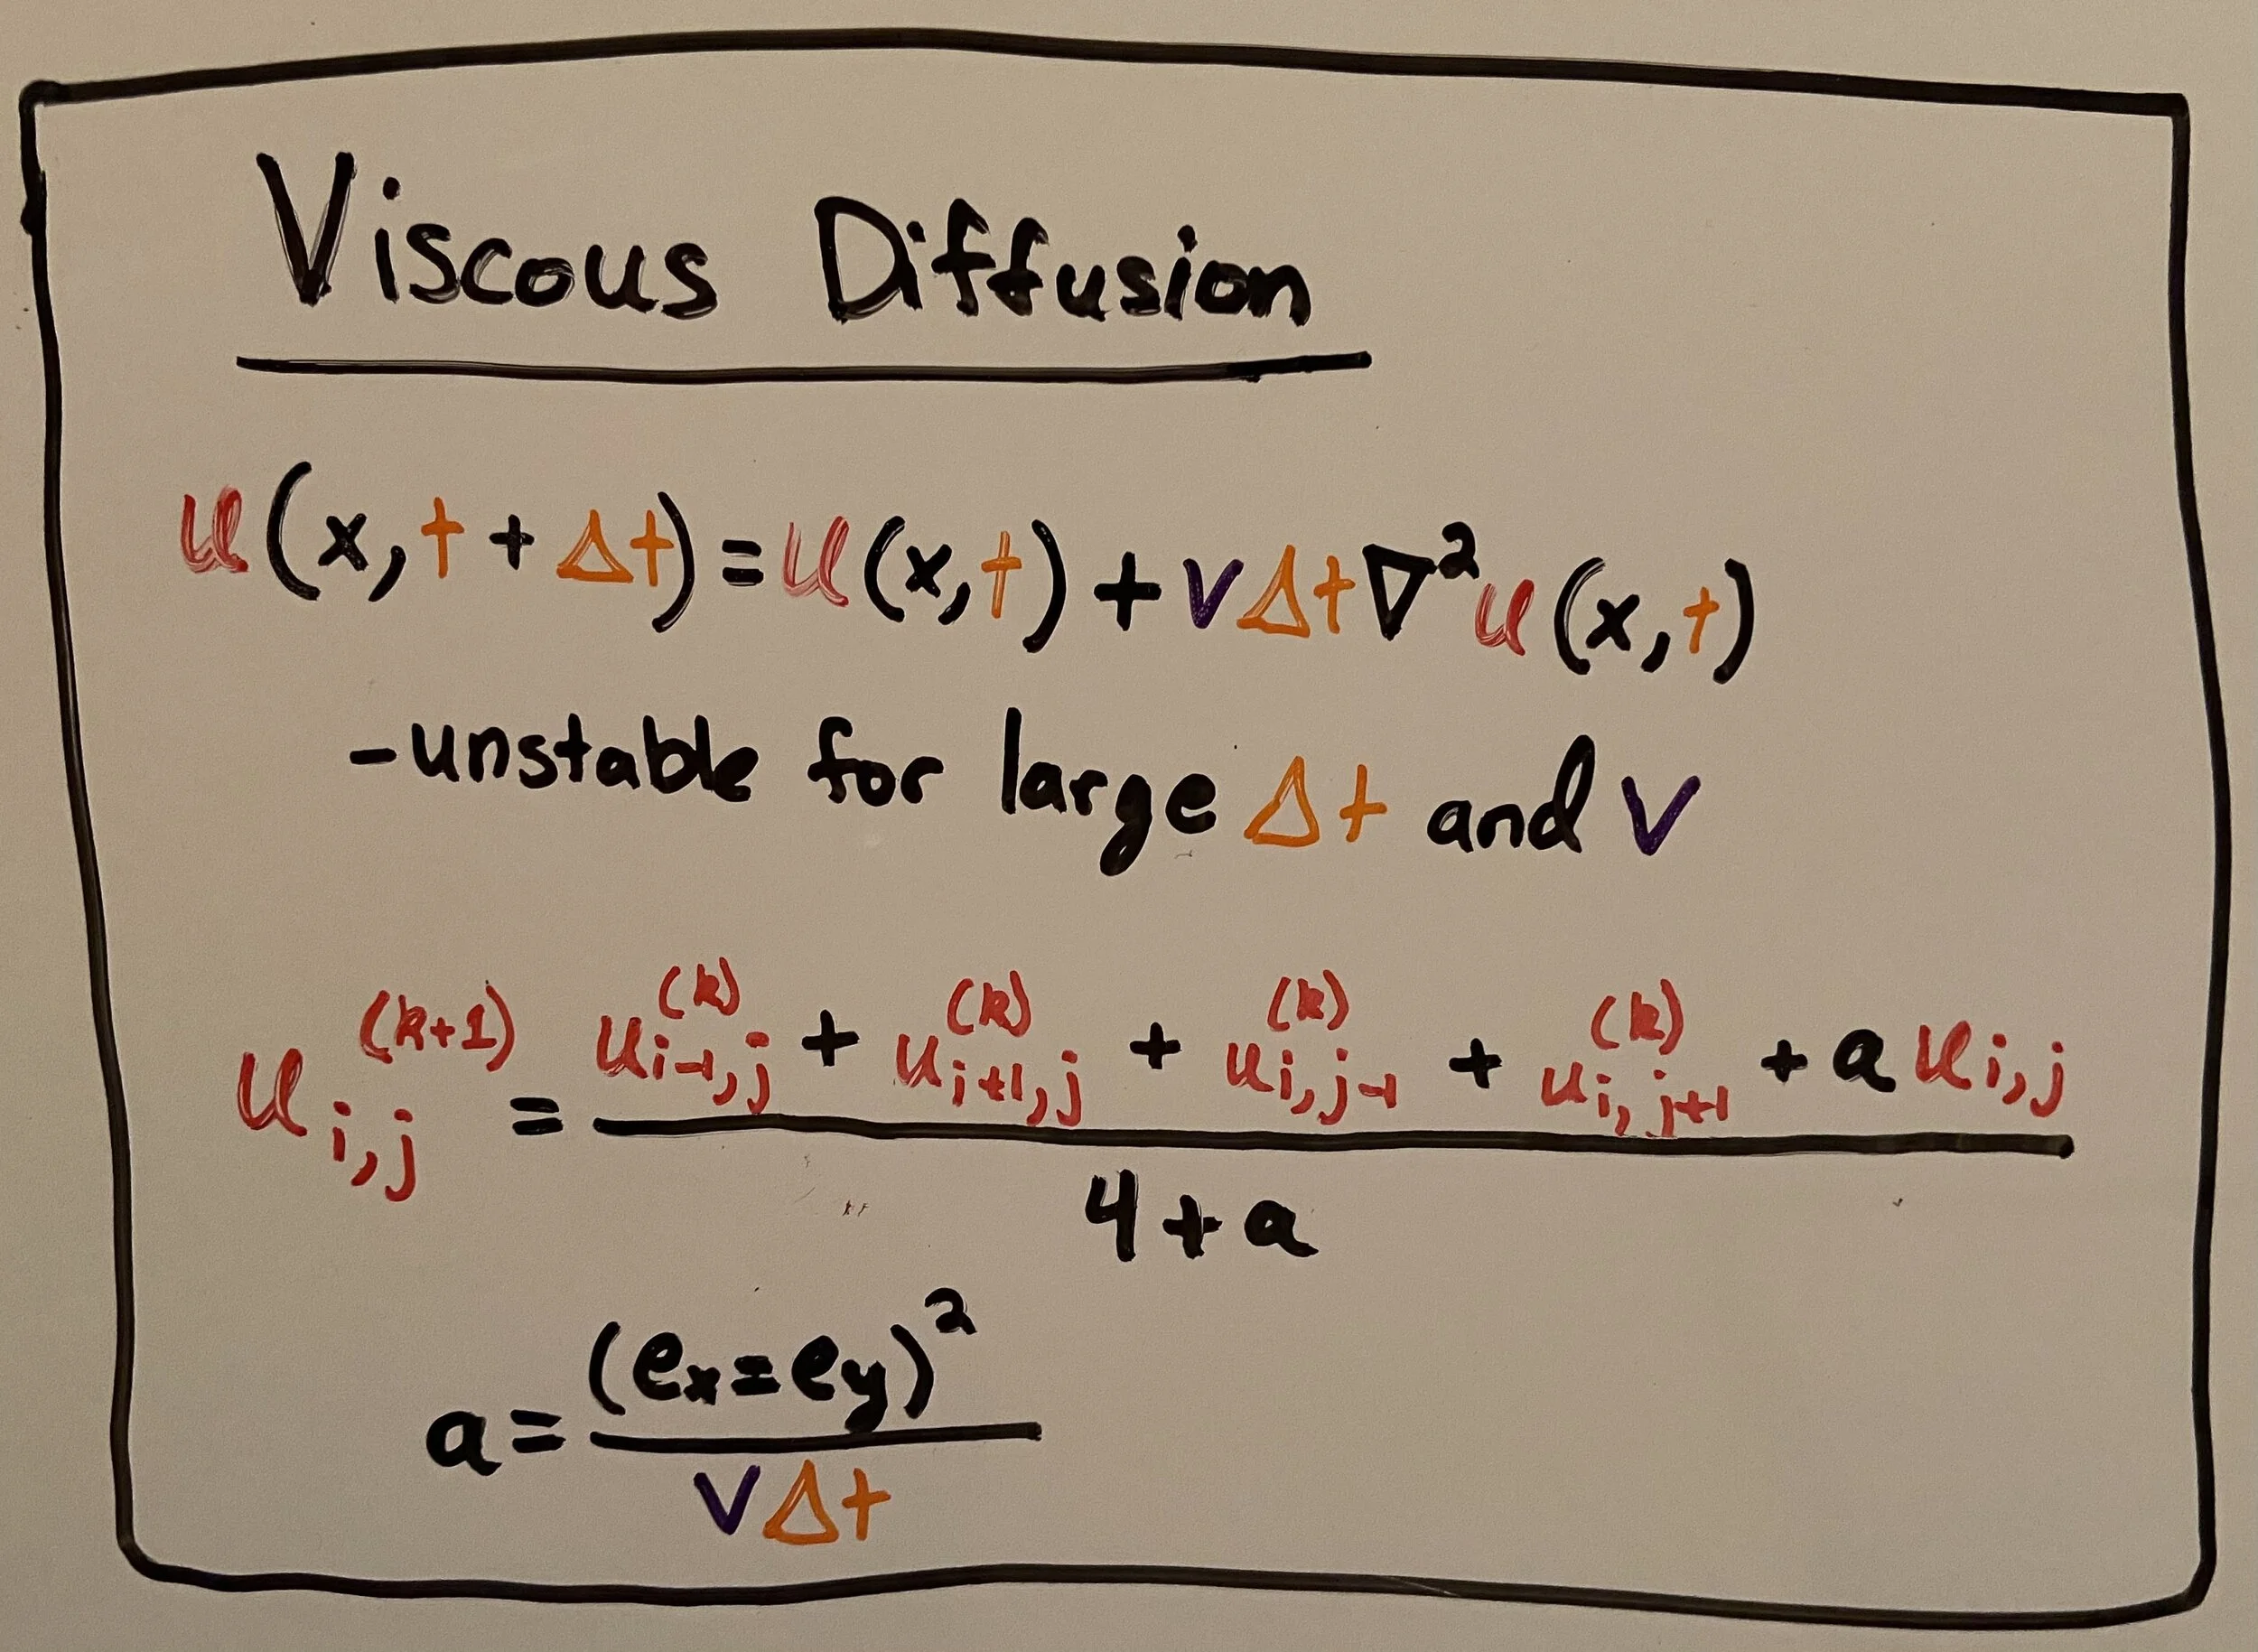 Viscous Diffusion
u(x,t + Δt) = u(x,t) + vΔt∇²u(x,t)
-unstable for large Δt and v
u_{i,j}^{(k+1)} = \frac{u_{i-1,j}^{(k)} + u_{i+1,j}^{(k)} + u_{i,j-1}^{(k)} + u_{i,j+1}^{(k)} + a u_{i,j}}{4+a}
a = \frac{(e_x=e_y)^2}{vΔt}